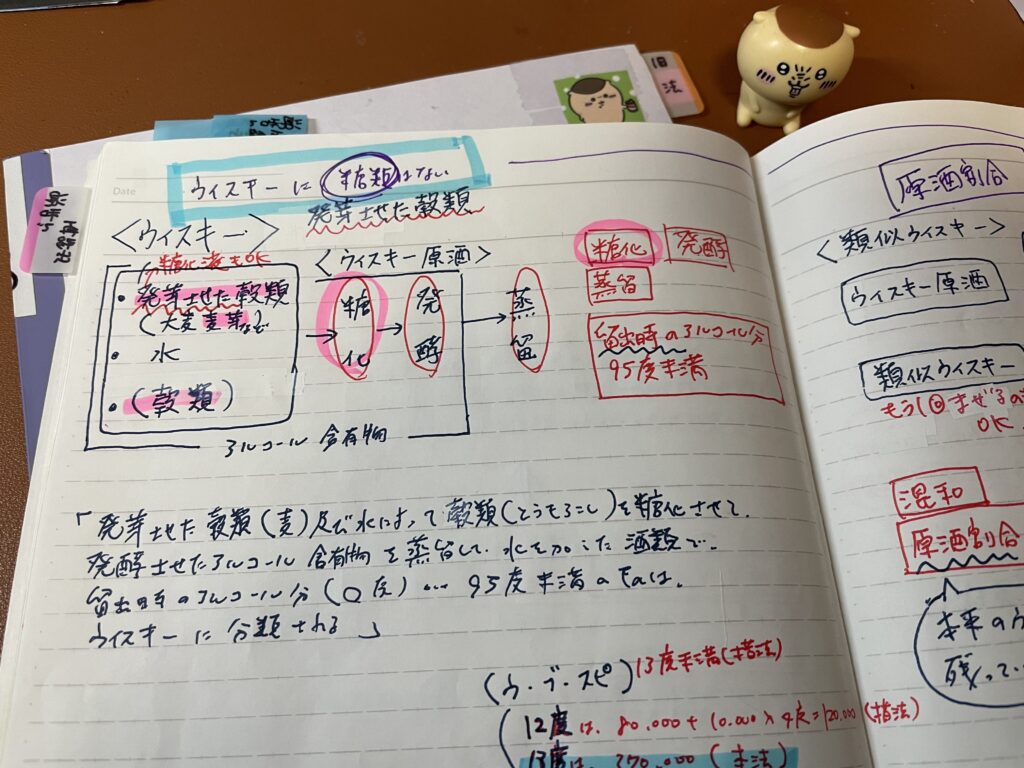 旧
法
Date
ウィスキーに糖類はない
発芽させた穀類
<ウィスキー>
糖化済もOK
・発芽させた穀類
(大麦麦芽など)
・水
・(穀類)
アルコール含有物
<ウィスキー原酒>
糖化
発酵
蒸留
糖化
発酵
蒸留
留出時のアルコール分
95度未満
「発芽させた穀類(麦)及び水によって穀類(とうもろこし)を糖化させて、
発酵させたアルコール含有物を蒸留して、水を加えた酒類で、
留出時のアルコール分(〇度)… 95度未満のものは、
ウィスキーに分類される」
(ウ・ブ・スピ)
13度未満(措法)
12度は、80,000+10,000×4度=120,000(措法)
13度は、370,000(本法)
原酒割合
<類似ウイスキー>
ウイスキー原酒
類似ウイスキー
OK
混和
原酒割合
本来のウ
残ってい